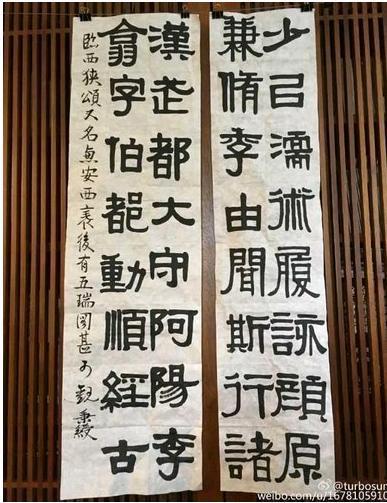 少㠯濡術履詠顏原
兼脩季由聞斯行諸
漢武都大守阿陽李
翕字伯都動順經古
臨西狹頌又名惠安西表後有五瑞圖甚可觀秉綬
@turbosur
weibo.com/u/1678105910